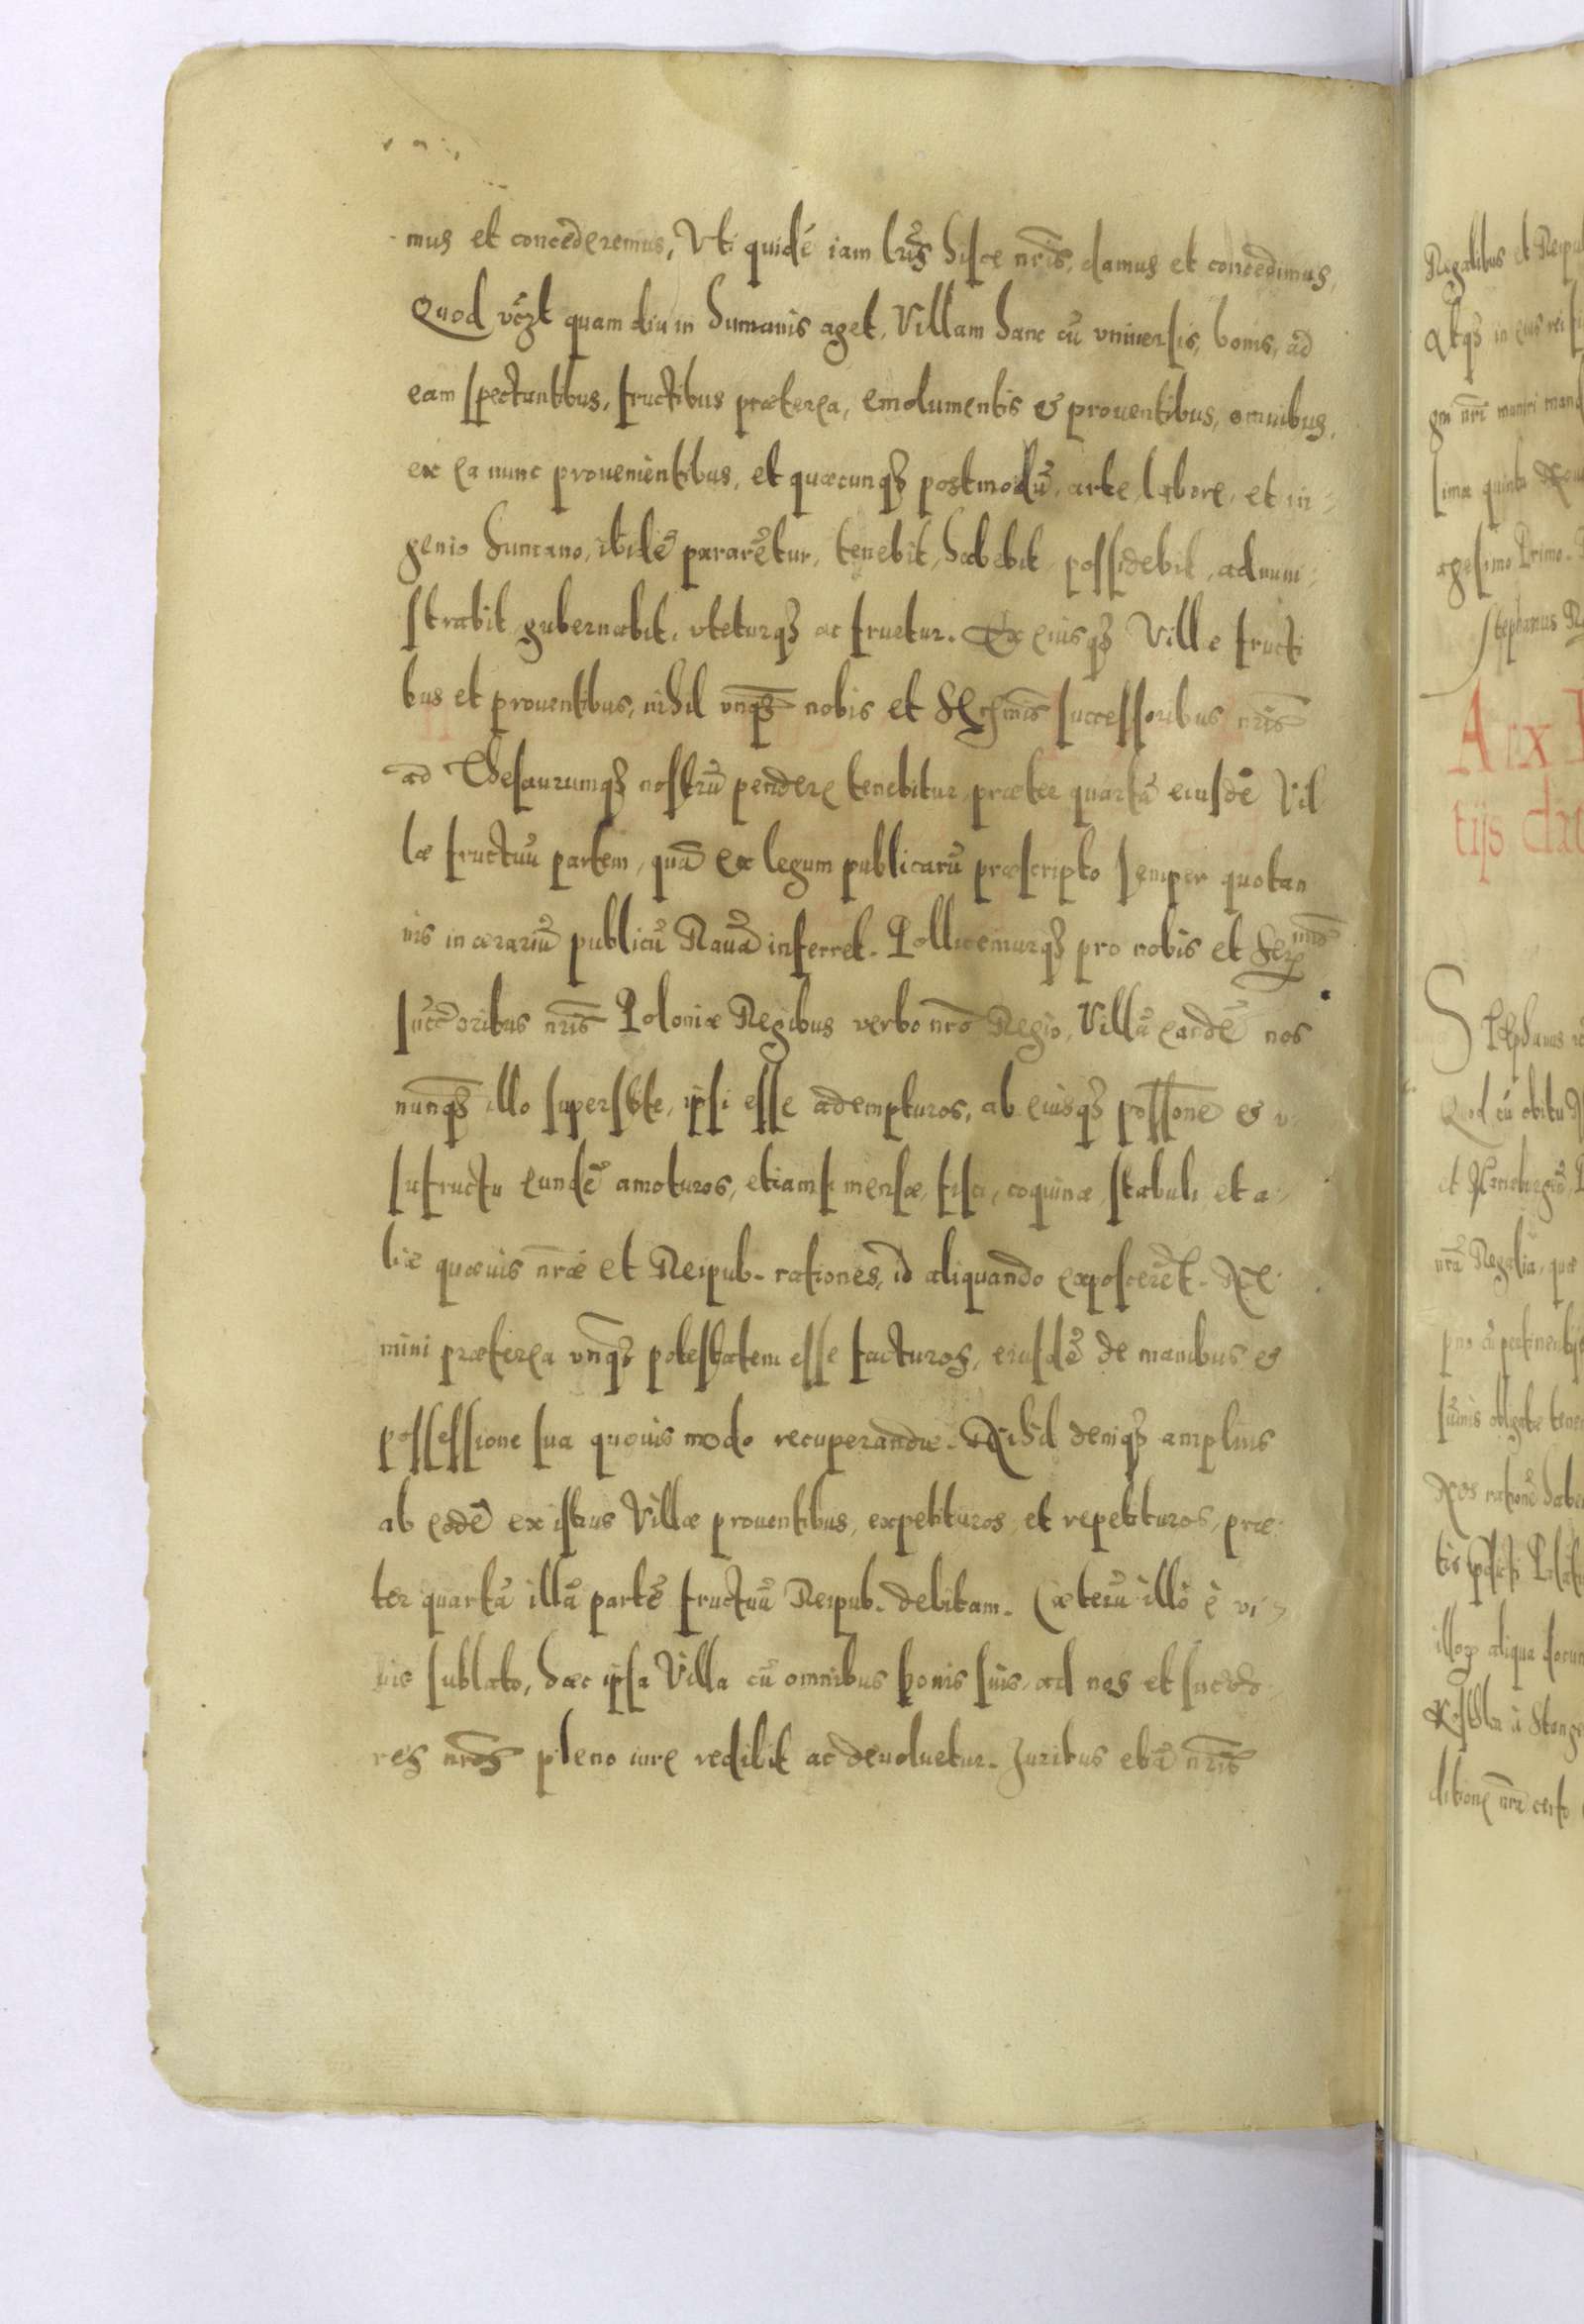 mus et concederemus, Uti quidē iam lr̃is hisce nr̃is, damus et concedimus,
Quod vc̃zt quam diu in humanis aget, Villam hanc cū vniuersis, bonis, ad
eam spectantibus, fructibus præterea, emolumentis & prouentibus, omnibus,
ex ea nunc prouenientibus, et quæcunqȝ postmodū, arte, labore, et in-
genio humano, ibidē pararētur, tenebit, habebit, possidebit, admini-
strabit, gubernabit, vteturqȝ ac fruetur. Ex eiusqȝ Villæ fructi
bus et prouentibus, nihil vnqȝ nobis et Ser̃mis successoribus nr̃is
ad Thesaurumqȝ nostrū pendere tenebitur, præter quartā eiusdē Vil
læ fructuū partem, quā ex legum publicarū præscripto semper quotan
nis in ærariū publicū Rauā inferret. Pollicemurqȝ pro nobis et Ser^mis
succ̃oribus nr̃is Poloniæ Regibus verbo nr̃o Regio, Villā eandē nos
nunqȝ illo superstite, ipsi esse adempturos, ab eiusqȝ poss̃one & v-
sufructu eundē amoturos, etiamsi mensæ, fisci, coquinæ, stabuli et a-
liæ quæuis nr̃æ et Reipub. rationes, id aliquando exposcerēt. Ne-
mini præterea vnqȝ potestatem esse facturos, eiusdē de manibus &
possessione sua quouis modo recuperandæ. Nihil deniqȝ amplius
ab eodē ex istius Villæ prouentibus, expetituros, et repetituros, præ-
ter quartā illā partē fructuū Reipub. debitam. Cæterū illo è vi-
uis sublato, hæc ipsa Villa cū omnibus bonis suis, ad nos et succ̃o-
res nr̃os pleno iure redibit ac deuoluetur. Iuribus etiā nr̃is
Regalibus et Reipub
Atqȝ in eius rei fi
gni nr̃i
agesimo Primo.
Stephanus R
Arx
tijs
Stephanus
Quod cū obitu
nr̃a Regalia, quæ
Nos rationē habe
aliqua
ditione nr̃a certo